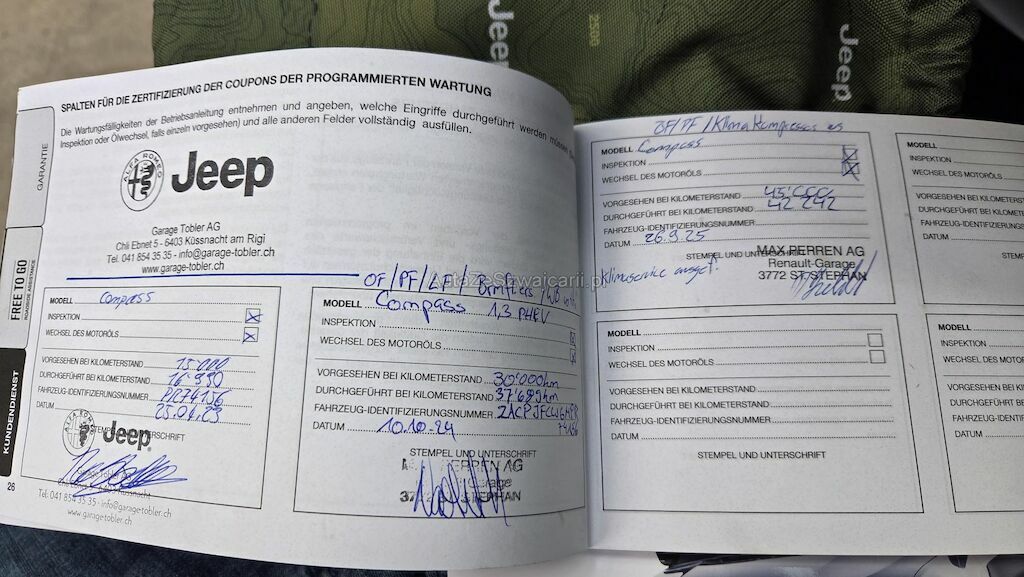 Jeep
Jeep
SPALTEN FÜR DIE ZERTIFIZIERUNG DER COUPONS DER PROGRAMMIERTEN WARTUNG
Die Wartungsfälligkeiten der Betriebsanleitung entnehmen und angeben, welche Eingriffe durchgeführt werden müssen
Inspektion oder Ölwechsel, falls einzeln vorgesehen) und alle anderen Felder vollständig ausfüllen.
GARANTIE
FREE TO GO
ROADSIDE ASSISTANCE
KUNDENDIENST
26
ALFA ROMEO
Jeep
Garage Tobler AG
Chli Ebnet 5 - 6403 Küssnacht am Rigi
Tel. 041 854 35 35 - info@garage-tobler.ch
www.garage-tobler.ch
MODELL Compass
INSPEKTION
WECHSEL DES MOTORÖLS
VORGESEHEN BEI KILOMETERSTAND 15.000
DURCHGEFÜHRT BEI KILOMETERSTAND 16.990
FAHRZEUG-IDENTIFIZIERUNGSNUMMER
DATUM 25.04.23
STEMPEL UND UNTERSCHRIFT
ALFA ROMEO
Jeep
Küssnacht
Tel. 041 854 35 35 - info@garage-tobler.ch
www.garage-tobler.ch
ÖF/PF/LF/
MODELL Compass 1,3 PHEV
INSPEKTION
WECHSEL DES MOTORÖLS
VORGESEHEN BEI KILOMETERSTAND 30'000km
DURCHGEFÜHRT BEI KILOMETERSTAND
FAHRZEUG-IDENTIFIZIERUNGSNUMMER
DATUM 10.10.24
STEMPEL UND UNTERSCHRIFT
PERREN AG
STEPHAN
ÖF/PF/Klima Kompressor
MODELL Compass
INSPEKTION
WECHSEL DES MOTORÖLS
VORGESEHEN BEI KILOMETERSTAND 45'000
DURCHGEFÜHRT BEI KILOMETERSTAND 42 242
FAHRZEUG-IDENTIFIZIERUNGSNUMMER
DATUM 26.9.25
STEMPEL UND UNTERSCHRIFT
Klimaservice ausgef.
MAX PERREN AG
Renault-Garage
3772 ST. STEPHAN
MODELL
INSPEKTION
WECHSEL DES MOTORÖLS
VORGESEHEN BEI KILOMETERSTAND
DURCHGEFÜHRT BEI KILOMETERSTAND
FAHRZEUG-IDENTIFIZIERUNGSNUMMER
DATUM
STEMPEL UND UNTERSCHRIFT
MODELL
INSPEKTION
WECHSEL DES MOTORÖLS
VORGESEHEN BEI
DURCHGEFÜHRT
FAHRZEUG-IDENT
DATUM
MODELL
INSPEKTION
WECHSEL DES
VORGESEHEN
DURCHGEFÜH
FAHRZEUG-ID
DATUM